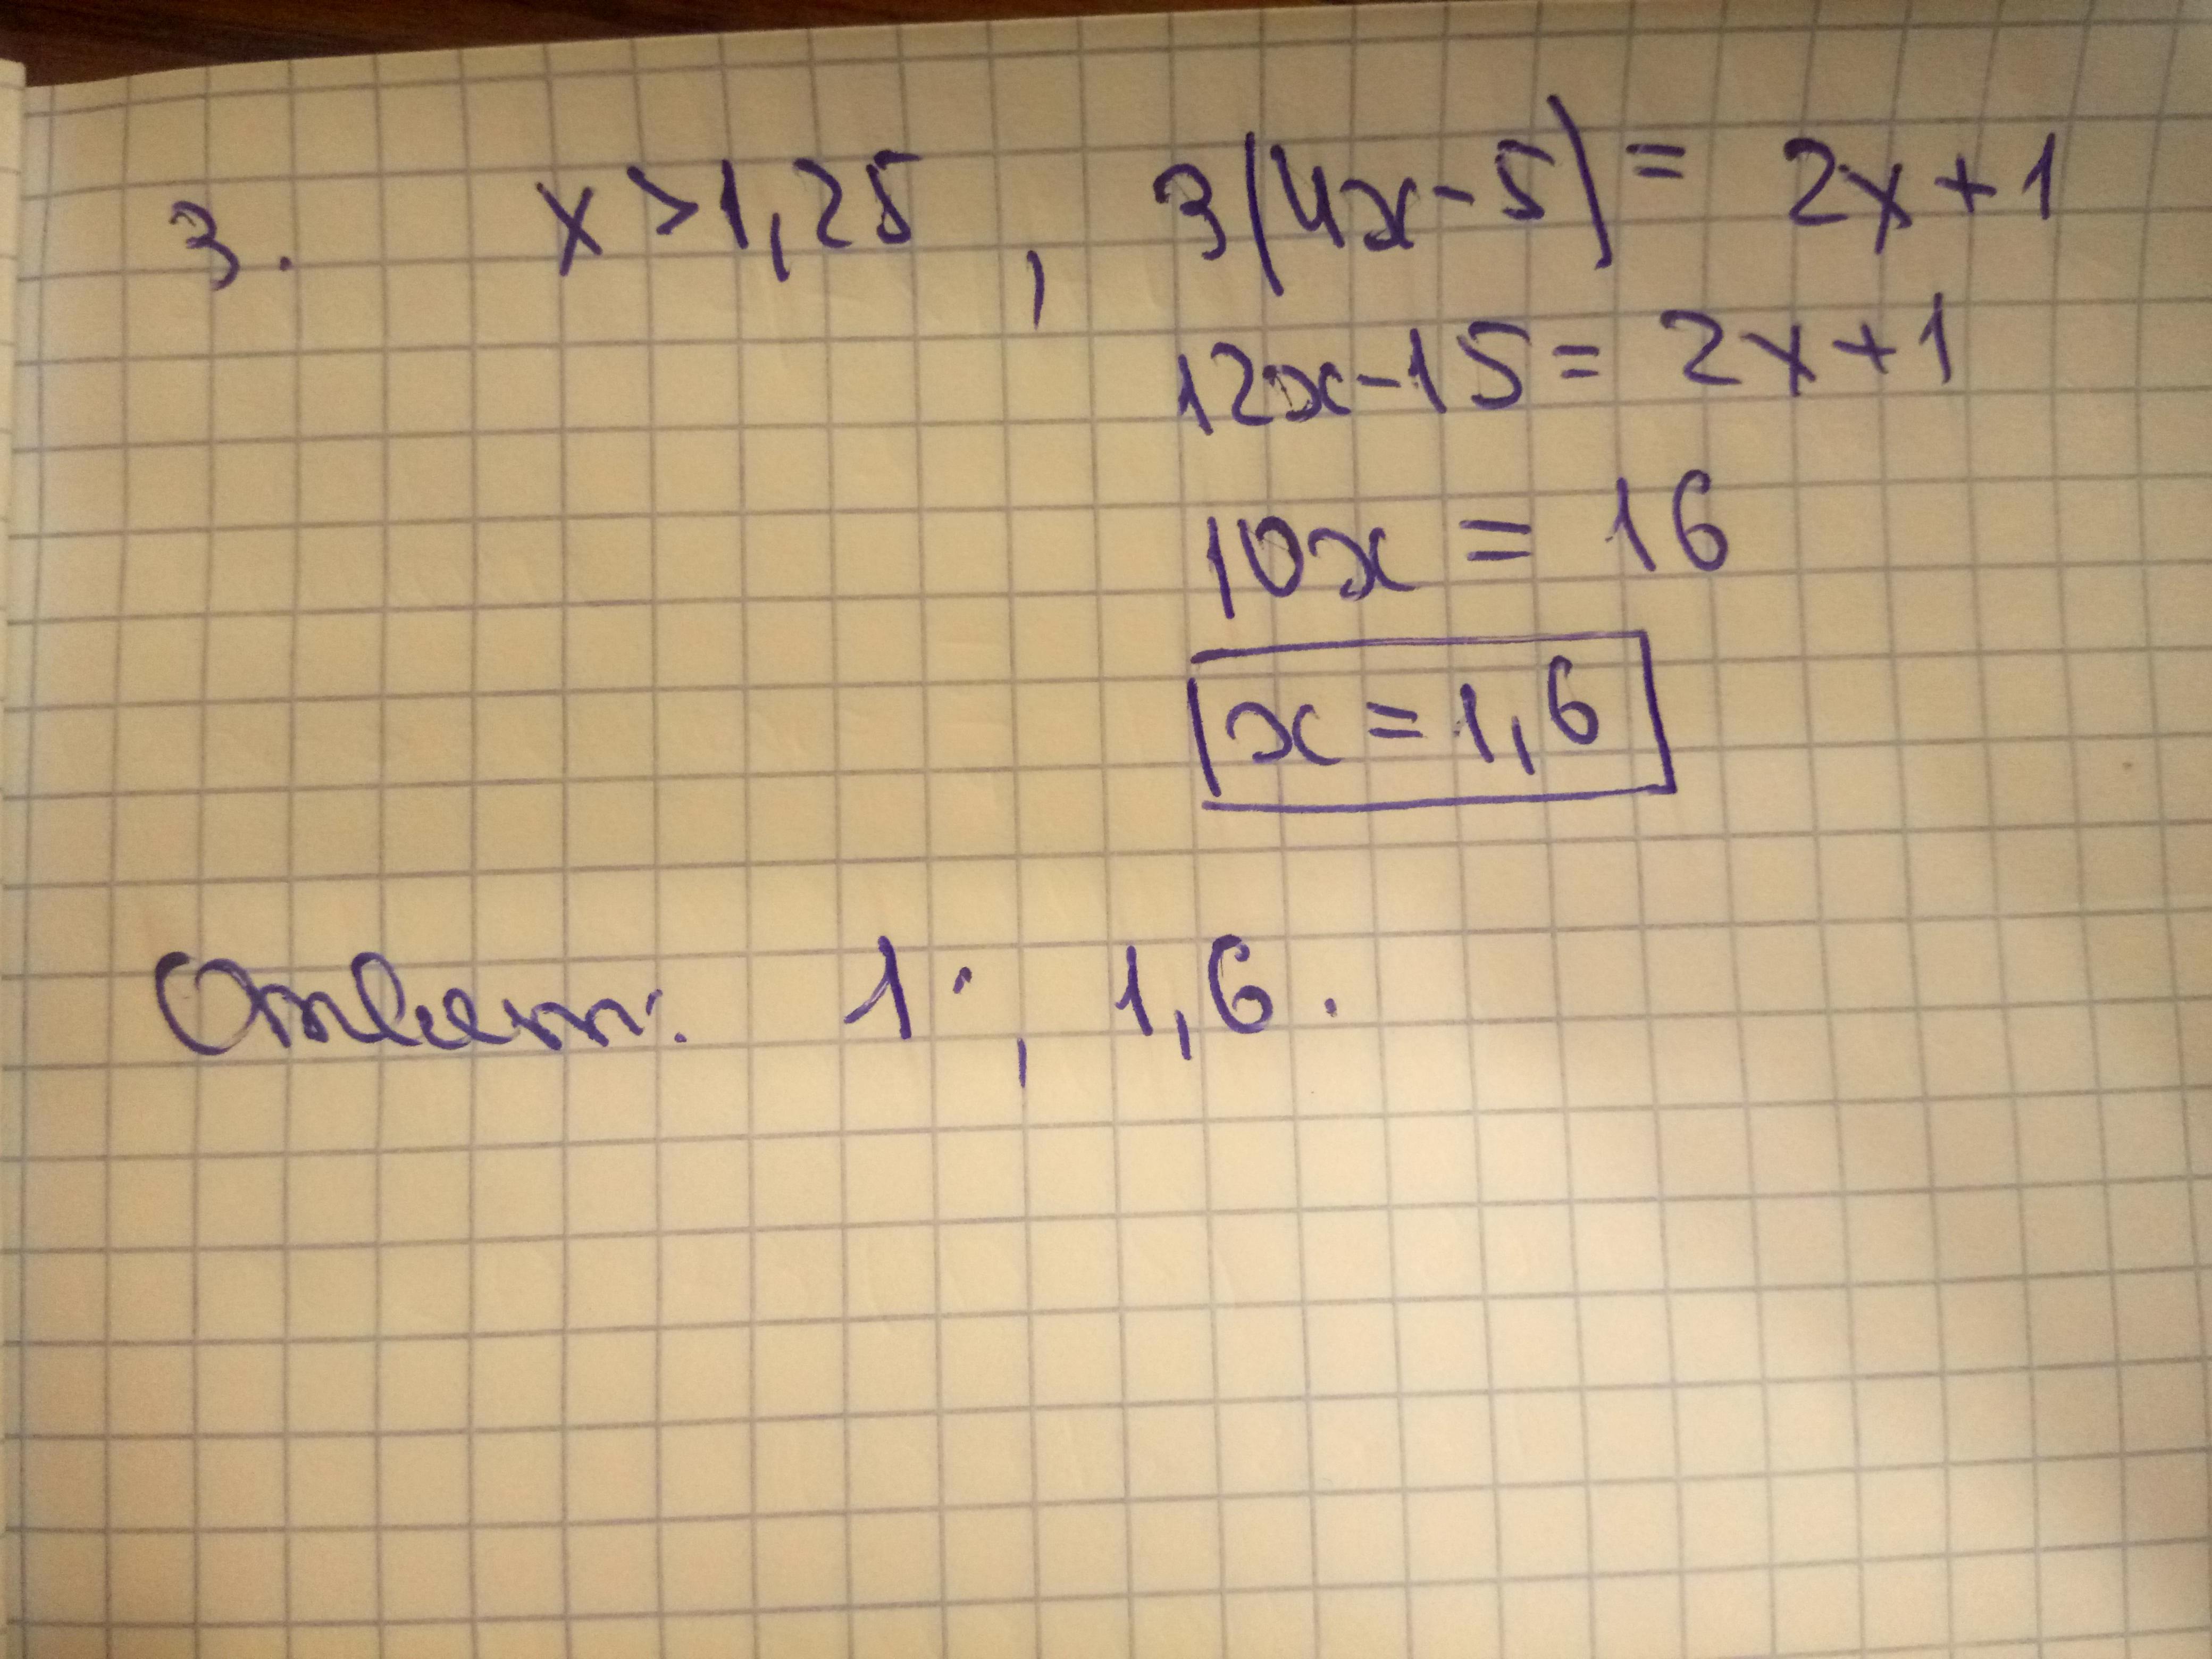 3. x > 1,25 , 3(4x - 5) = 2x + 1
12x - 15 = 2x + 1
10x = 16
x = 1,6
Ответ: 1; 1,6.